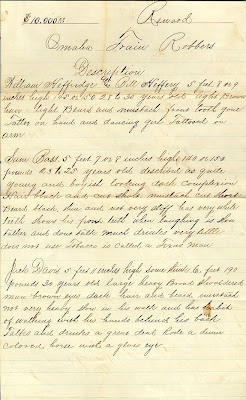 $10.000.00 Reward
Omaha Train Robbers
Description
William Heffridge is Bill Heffery 5 feet 8 or 9
inches high 145 or 150 28 to 30 years old light Brown
hair light Beard and mustash front tooth gone
Tattoo on hand and dancing girl Tattooed on
arm
Sam Bass 5 feet 7 or 8 inches high 140 or 150
pounds 23 to 25 years old described as quite
young and boyish looking dark complexion
Hair black and cut short mustash cut short
Beard black thin and not very stiff has very white
teeth shows his front teeth when laughing is slow
talker and dont talk much drinks very little
does not use Tobacco is called a Texas man
Jack Davis 5 feet 11 inches high some times 6. feet 190
pounds 30 years old large heavy Broad shouldered
man brown eyes dark hair and beard mustash
not very heavy slow in his walk and has habit
of walking with his hands behind his back
talks and drinks a great deal Rode a dunn
colored horse with a glass eye